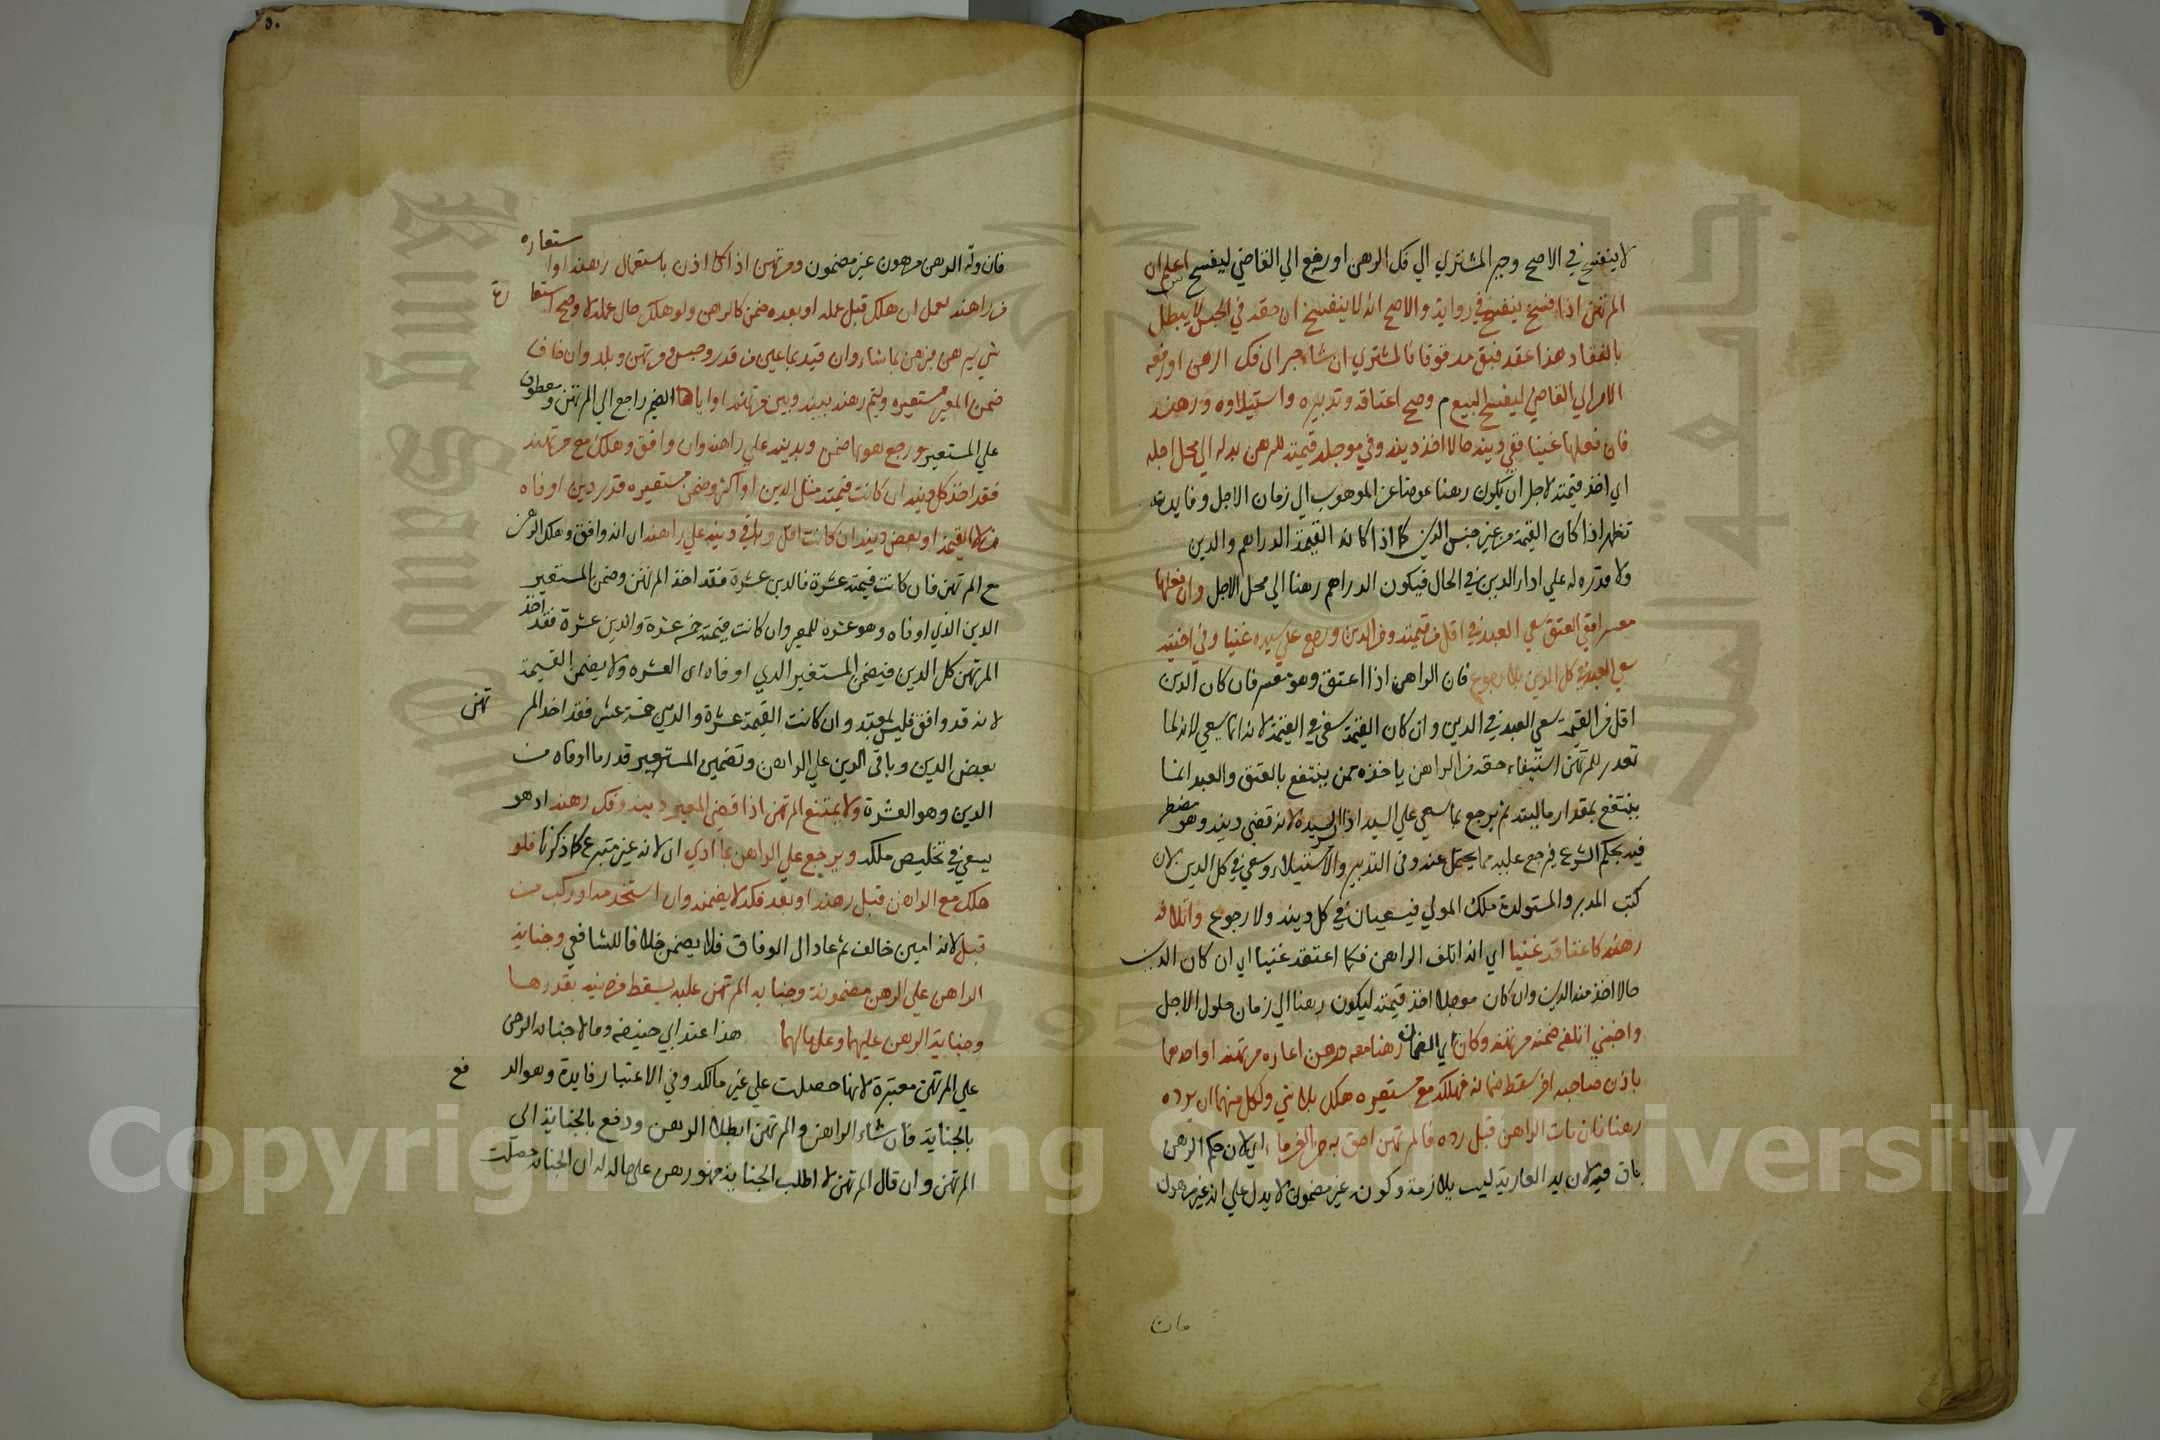 لا ينفسخ في الاصح وجبر المشتري الي فك الرهن او رفع الي القاضي ليفسخ اعلم ان
المرتهن اذا فسخ ينفسخ في رواية والاصح انه لا ينفسخ ان حقه في الحبس لا يبطل
بانعقاد هذا عقد فبقي موقوفا فالمشتري ان شاء صبر الى فك الرهن او رفع
الامر الي القاضي ليفسخ البيع م وصح اعتاقه وتدبيره واستيلاده ورهنه
فان فعلها غنيا ففي دينه حالا اخذ دينه وفي موجله قيمته للرهن بدله الي محل اجله
اي اخذ قيمته لاجل ان يكون رهنا عوضا عن الموهوب الي زمان الاجل وفايدته
تظهر اذا كان القيمة من غير جنس الدين كما اذا كانه القيمة الدراهم والدين
ولا قدره له علي اداء الدين في الحال فيكون الدراهم رهنا الي محل الاجل وان فعلها
معسرا ففي العتق سعي العبد في اقل من قيمته ومن الدين ورجع علي سيده غنيا وفي اختيه
سعي العبد في كل الدين بلا رجوع فان الراهن اذا اعتق وهو معسر فان كان الدين
اقل من القيمة سعي العبد في الدين وان كان القيمة سعي في القيمة لانه انما يسعي لانه لما
تعذر للمرتهن استيفاء حقه من الراهن ياخذه ممن ينتفع بالعتق والعبد انما
ينتفع بمقدار ماليته ثم يرجع بما سعي علي السيد اذا ايسر سيده لانه قضي دينه وهو مضطر
فيه بحكم الشرع فيرجع عليه مما يحمل عنه وفي التدبير والاستيلاء وسعي في كل الدين لان
كتب المدبر والمستولدة ملك المولي فيسعيان في كل دينه ولا رجوع واتلافه
رهنه كاعتاقه غنيا اي انه اتلف الراهن فكما اعتقه غنيا اي ان كان الدين
حالا اخذ منه الدين وان كان موجلا اخذ قيمته ليكون رهنا الي زمان حلول الاجل
واجنبي اتلفه ضمنه مرتهنه وكان اي الضمان رهنا معه ورهن اعاره مرتهنه او احدهما
باذن صاحبه اخر سقط ضمانه فهلكه مع مستعيره هلك بلا شي ولكل منهما ان يرده
رهنا فان مات الراهن قبل رده فالمرتهن احق به من الغرماء اي لان حكم الرهن
باق فيه لان يد العارية ليست بلازمة وكونه غير مضمون لا يدل علي انه غير مرهون
فان
فان ولد الرهن مرهون غير مضمون ومرتهن اذا كا اذن باستعمال رهنه او استعاره
من راهنه لعمل ان هلك قبل عمله او بعده ضمن كالرهن ولو هلك حال عمله لا وصح استعارة
شي ليرهن فيرهن بما شاء وان قيد بما عين من قدر وجنس ومرتهن وبلد وان خالف
ضمن المعير مستعيره ويتم رهنه بينه وبين مرتهنه او اياه الضمير راجع الي المرتهن ومعطوف
علي المستعير ورجع هو بما ضمن وبدينه علي راهنه وان وافق وهلك مع مرتهنه
فقد اخذ كل دينه ان كانت قيمته مثل الدين او اكثر وضمن مستعيره قدر دين اوفاه
منه لا القيمة او بعض دينه ان كانت اقل وباقي دينه علي راهنه اي انه وافق وهلك الرهن
مع المرتهن فان كانت قيمته عشرة فالدين عشرة فقد اخذ المرتهن وضمن المستعير
الدين الذي اوفاه وهو عشرة للمعير وان كانت قيمته خمسة عشرة والدين عشرة فقد اخذ
المرتهن كل الدين فيضمن المستعير الذي اوفاه اي العشره ولا يضمن القيمة
لانه قد وافق فليس بمعتد وان كانت القيمة عشرة والدين خمسة عشر فقد اخذ المرتهن
بعض الدين وباقي الدين علي الراهن وتضمين المستعير قدر ما اوفاه من
الدين وهو العشرة ولا يمتنع المرتهن اذا قضي المعير دينه وفك رهنه اذ هو
يسعي في تخليص ملكه ويرجع علي الراهن بما ادي اي لانه غير متبرع كما ذكرنا فلو
هلك مع الراهن قبل رهنه او بعد فكه لا يضمنه وان استخدمه او ركب من
قبل لانه امين خالف ثم عاد الى الوفاق فلا يضمن خلافا للشافعي وجناية
الراهن علي الرهن مضمونة وجناية المرتهن عليه يسقط من دينه بقدرها
وجناية الرهن عليهما وعلي مالهما هذا عند ابي حنيفه وقالا جناية الرهن
علي المرتهن معتبرة لانها حصلت علي غير مالكه وفي الاعتبار فايدة وهو الدفع
بالجناية فان شاء الراهن والمرتهن ابطلا الرهن ودفع بالجناية الى
المرتهن وان قال المرتهن لا اطلب الجناية فهو رهن علي حاله له ان الجناية حصلت
٥٠
Copyright © King Saud University
King Saud University
1957